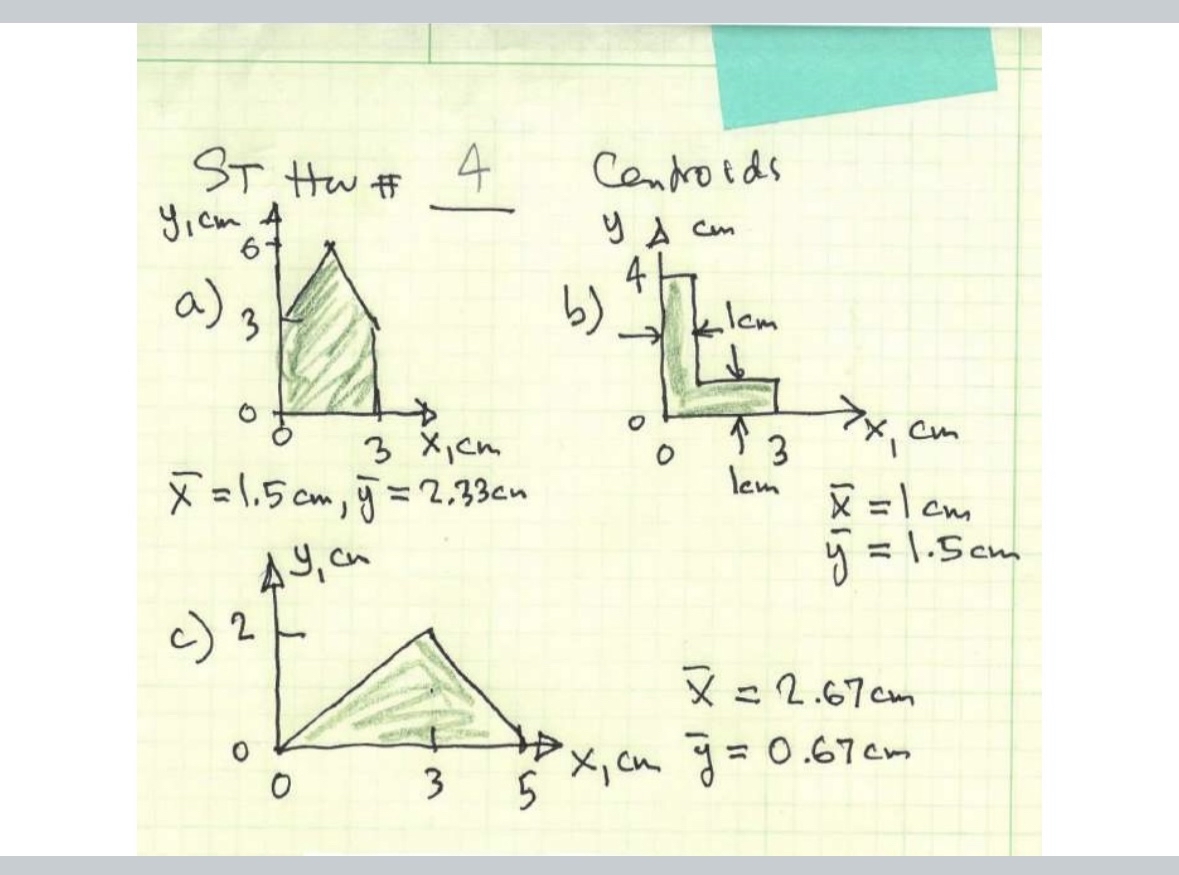 ST HW # 4
Centroids
a)
y, cm
6
3
0
0
3
x, cm
x̄ = 1.5 cm, ȳ = 2.33 cm
b)
y cm
4
1cm
0
0
3
x, cm
1cm
x̄ = 1 cm
ȳ = 1.5 cm
c)
y, cm
2
0
0
3
5
x, cm
x̄ = 2.67 cm
ȳ = 0.67 cm